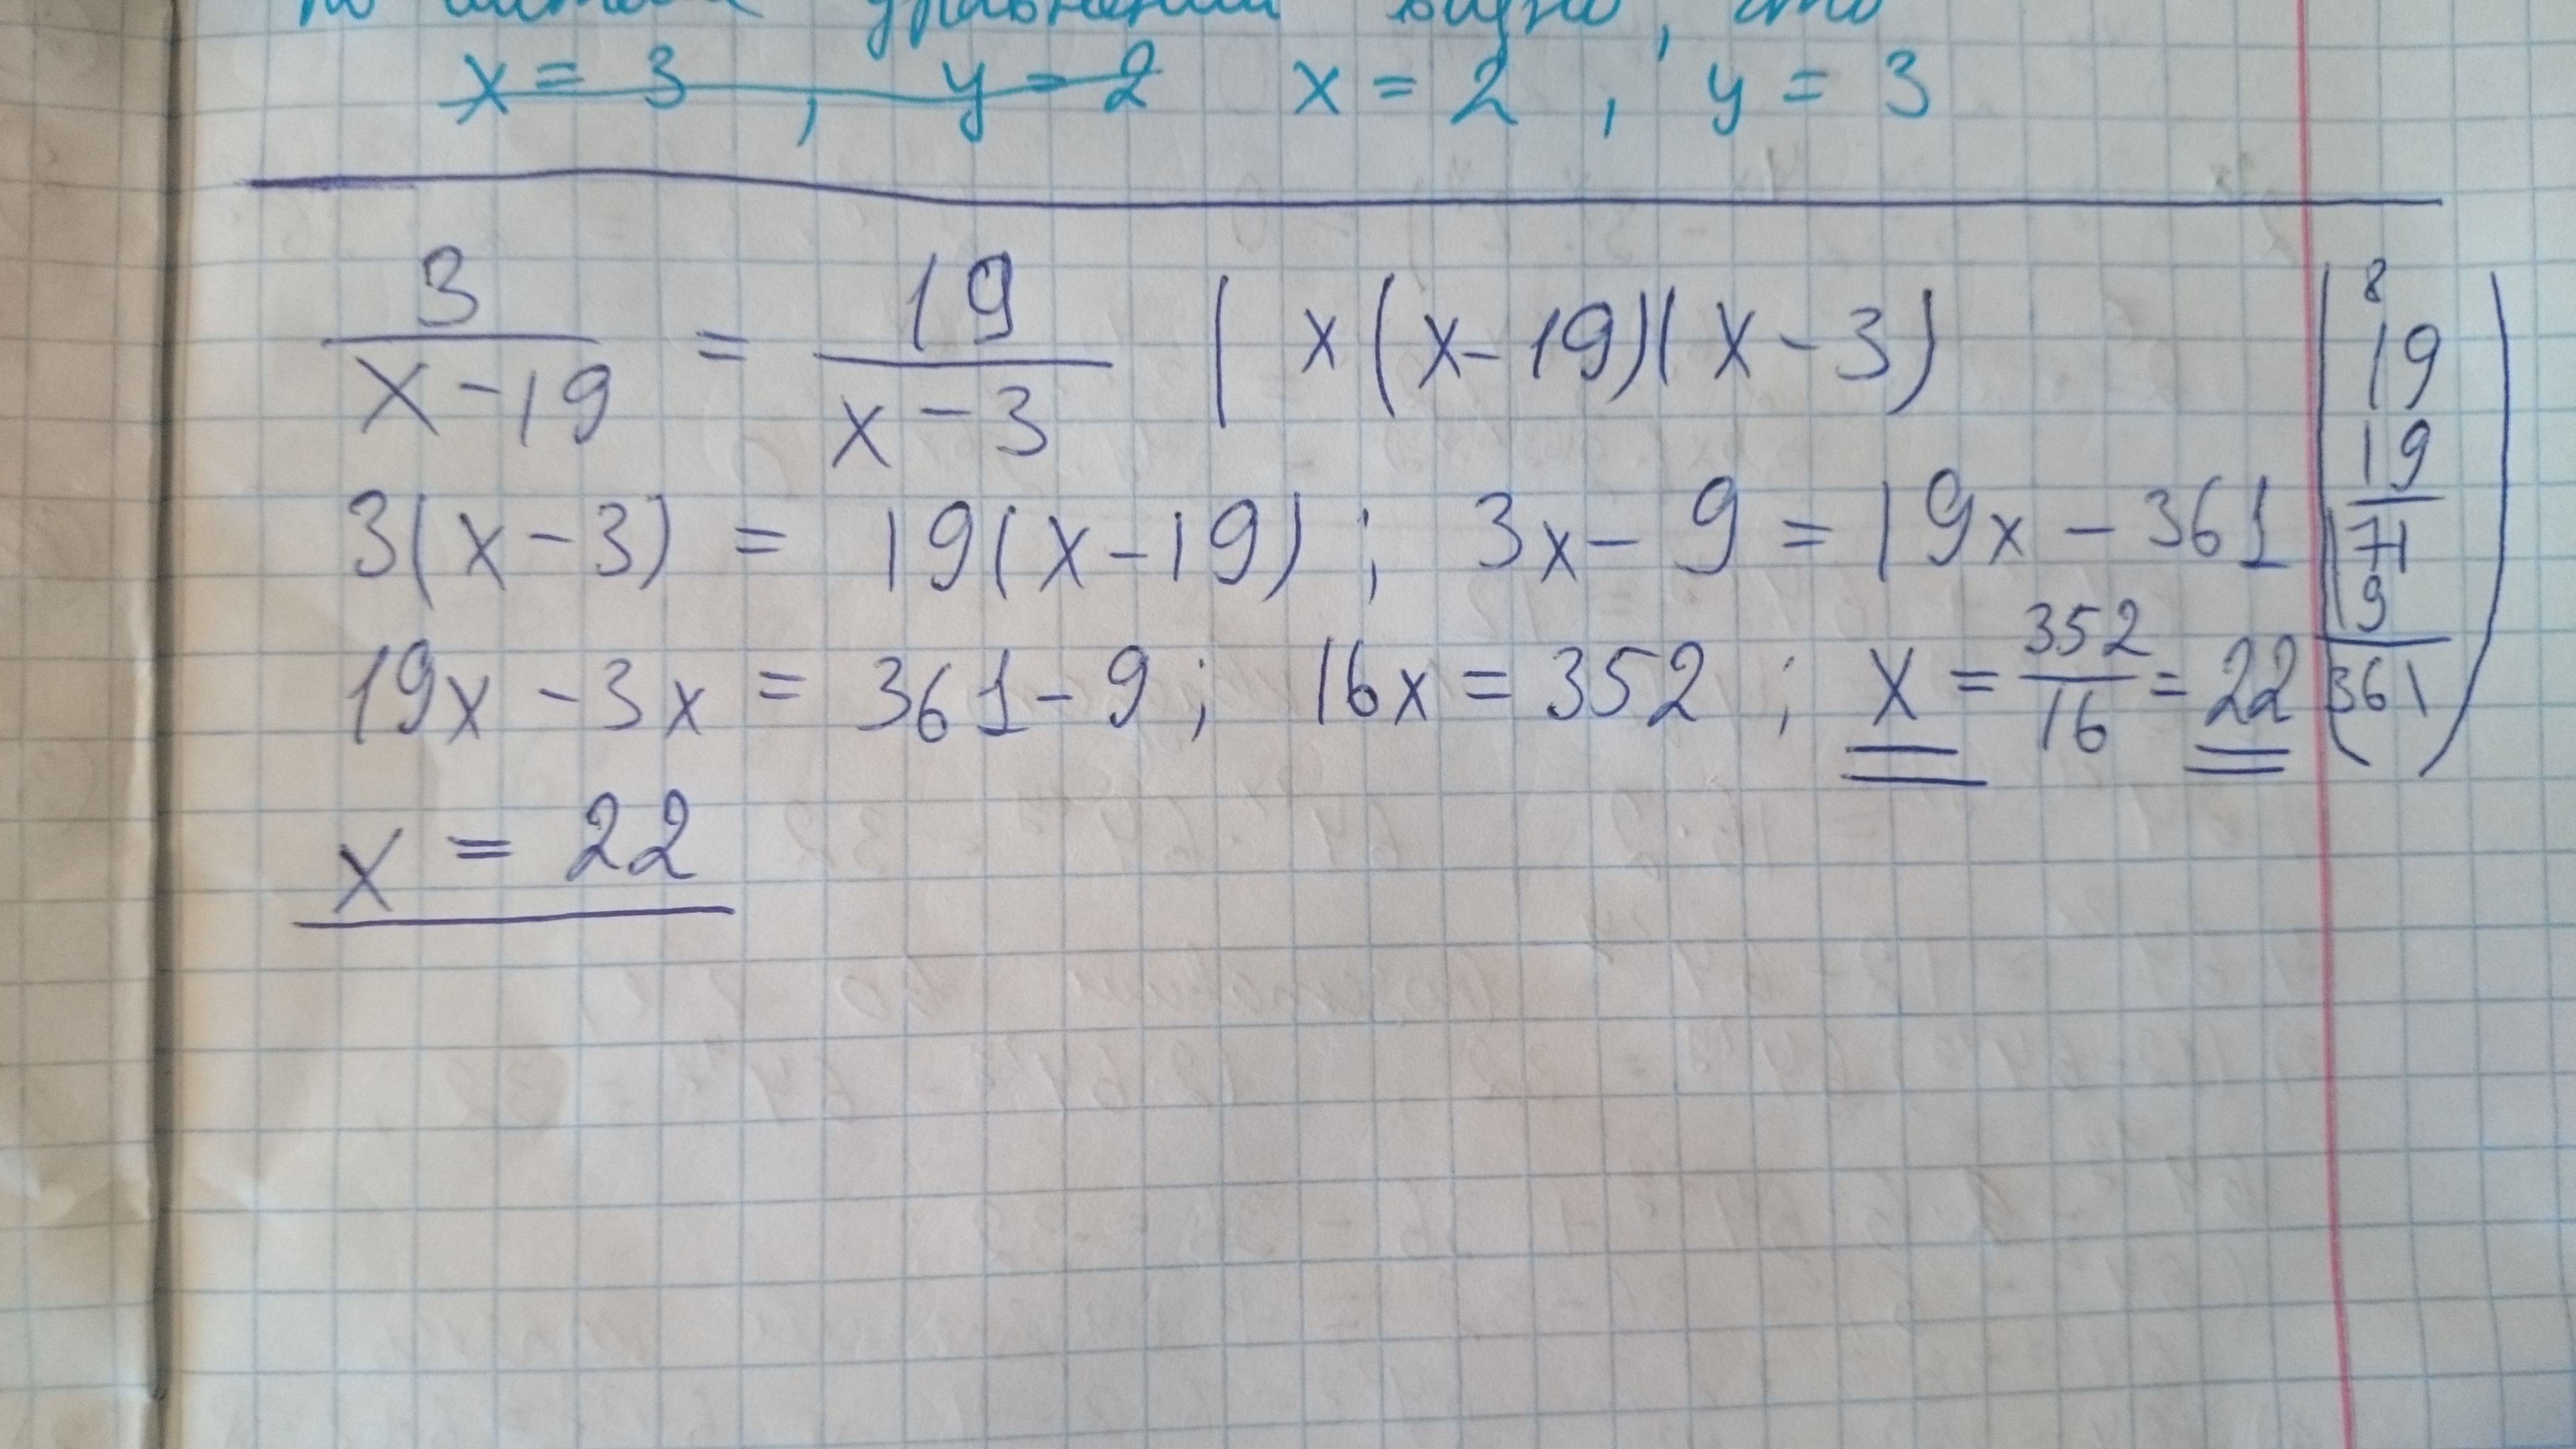 уравнений видно, что
x = 3 , y = 2 x = 2 , y = 3
3/(x-19) = 19/(x-3) | x(x-19)(x-3)
3(x-3) = 19(x-19) ; 3x - 9 = 19x - 361
19x - 3x = 361 - 9 ; 16x = 352 ; x = 352/16 = 22
x = 22
8
19
19
171
19
361